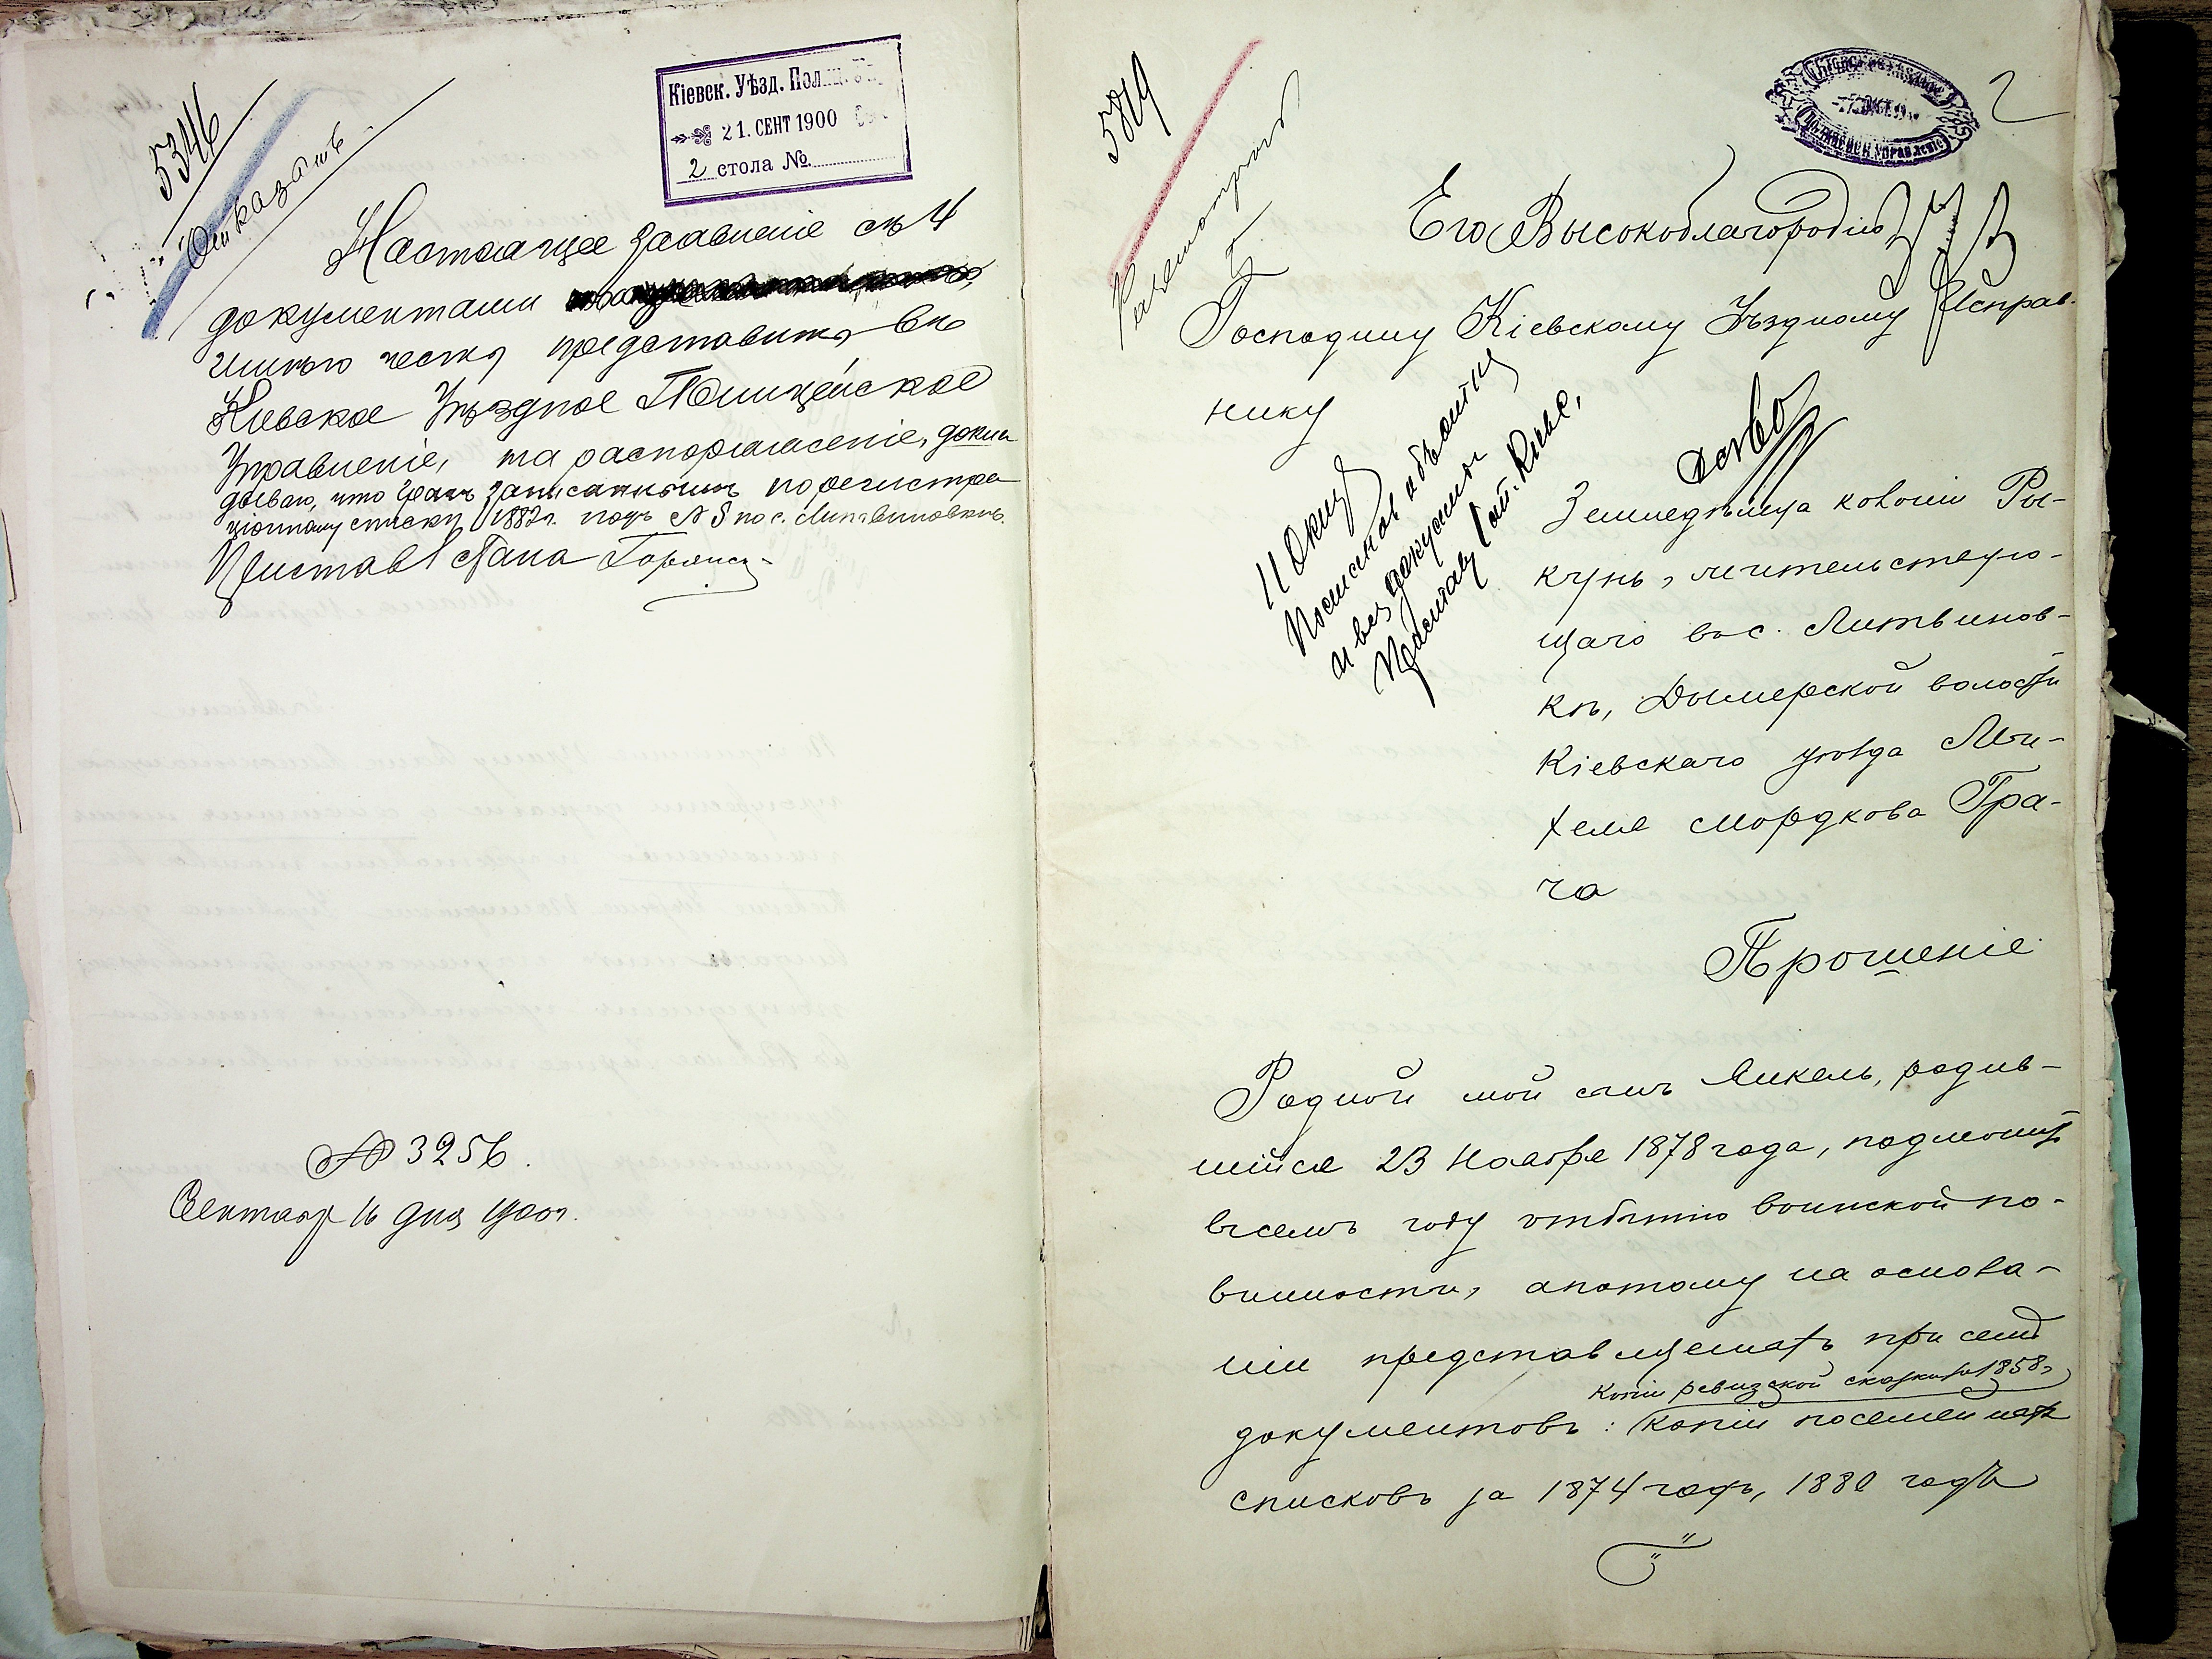 5346
Отказать
Кіевск. Уѣзд. Полиц.
21. СЕНТ 1900
2 стола №
Настоящее заявленіе съ 4
документами
имѣю честь представить въ
Кіевское Уѣздное Полицейское
Управленіе, на распоряженіе, докла
дывая, что Грачъ записаннымъ по регистра
ціонному списку 1882 г. подъ № 8 по с. Литвиновкѣ.
Приставъ 1 Стана
№ 3256.
Сентябр 16 дня 1900 г.
5819
2
Его Высокоблагородію
Господину Кіевскому Уѣздному Исправ-
нику
11 Окт
и безъ документ
Приставу 1 ст. Кіев.
Земледѣльца колоніи Ры-
кунь, жительствую-
щаго въ с. Литвинов-
кѣ, Дымерской волости
Кіевскаго уѣзда Ми-
хеля Мордкова Гра-
ча
Прошеніе
Родной мой сынъ Янкель, родив-
шійся 23 Ноября 1878 года, подлежитъ
въ семъ году отбытію воинской по-
винности, а потому на основа-
ніи представляемыхъ при семъ
копіи ревизской сказки за 1858 г.
документовъ: копіи посемейныхъ
списковъ за 1874 годъ, 1880 годъ